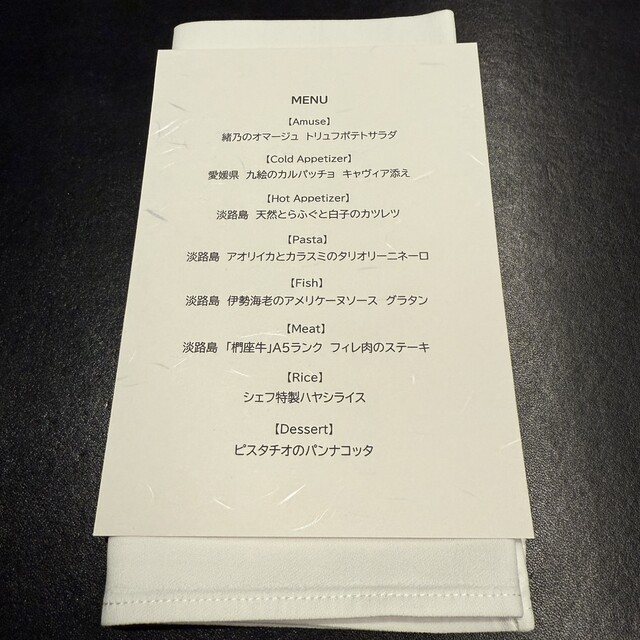 MENU
【Amuse】
緒乃のオマージュ トリュフポテトサラダ
【Cold Appetizer】
愛媛県 九絵のカルパッチョ キャヴィア添え
【Hot Appetizer】
淡路島 天然とらふぐと白子のカツレツ
【Pasta】
淡路島 アオリイカとカラスミのタリオリーニネーロ
【Fish】
淡路島 伊勢海老のアメリケーヌソース グラタン
【Meat】
淡路島 「椚座牛」A5ランク フィレ肉のステーキ
【Rice】
シェフ特製ハヤシライス
【Dessert】
ピスタチオのパンナコッタ